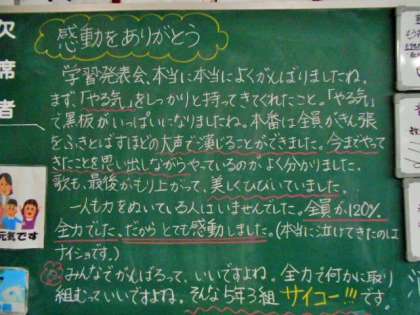 感動をありがとう
学習発表会、本当に本当によくがんばりましたね。
まず、「やる気」をしっかりと持ってきてくれたこと。「やる気」
で黒板がいっぱいになりましたね。本番は全員がきん張
をふきとばすほどの大声で演じることができました。今までやって
きたことを思い出しながらやっているのがよく分かりました。
歌も、最後がもり上がって、美しくひびいていました。
一人も力をぬいている人はいませんでした。全員が120%
全力でした。だからとても感動しました。(本当に泣けてきたのは
ナイショです。)
みんなでがんばるって、いいですよね。全力で何かに取り
組むっていいですよね。そんな5年3組サイコー!!!です。
欠席者
元気です